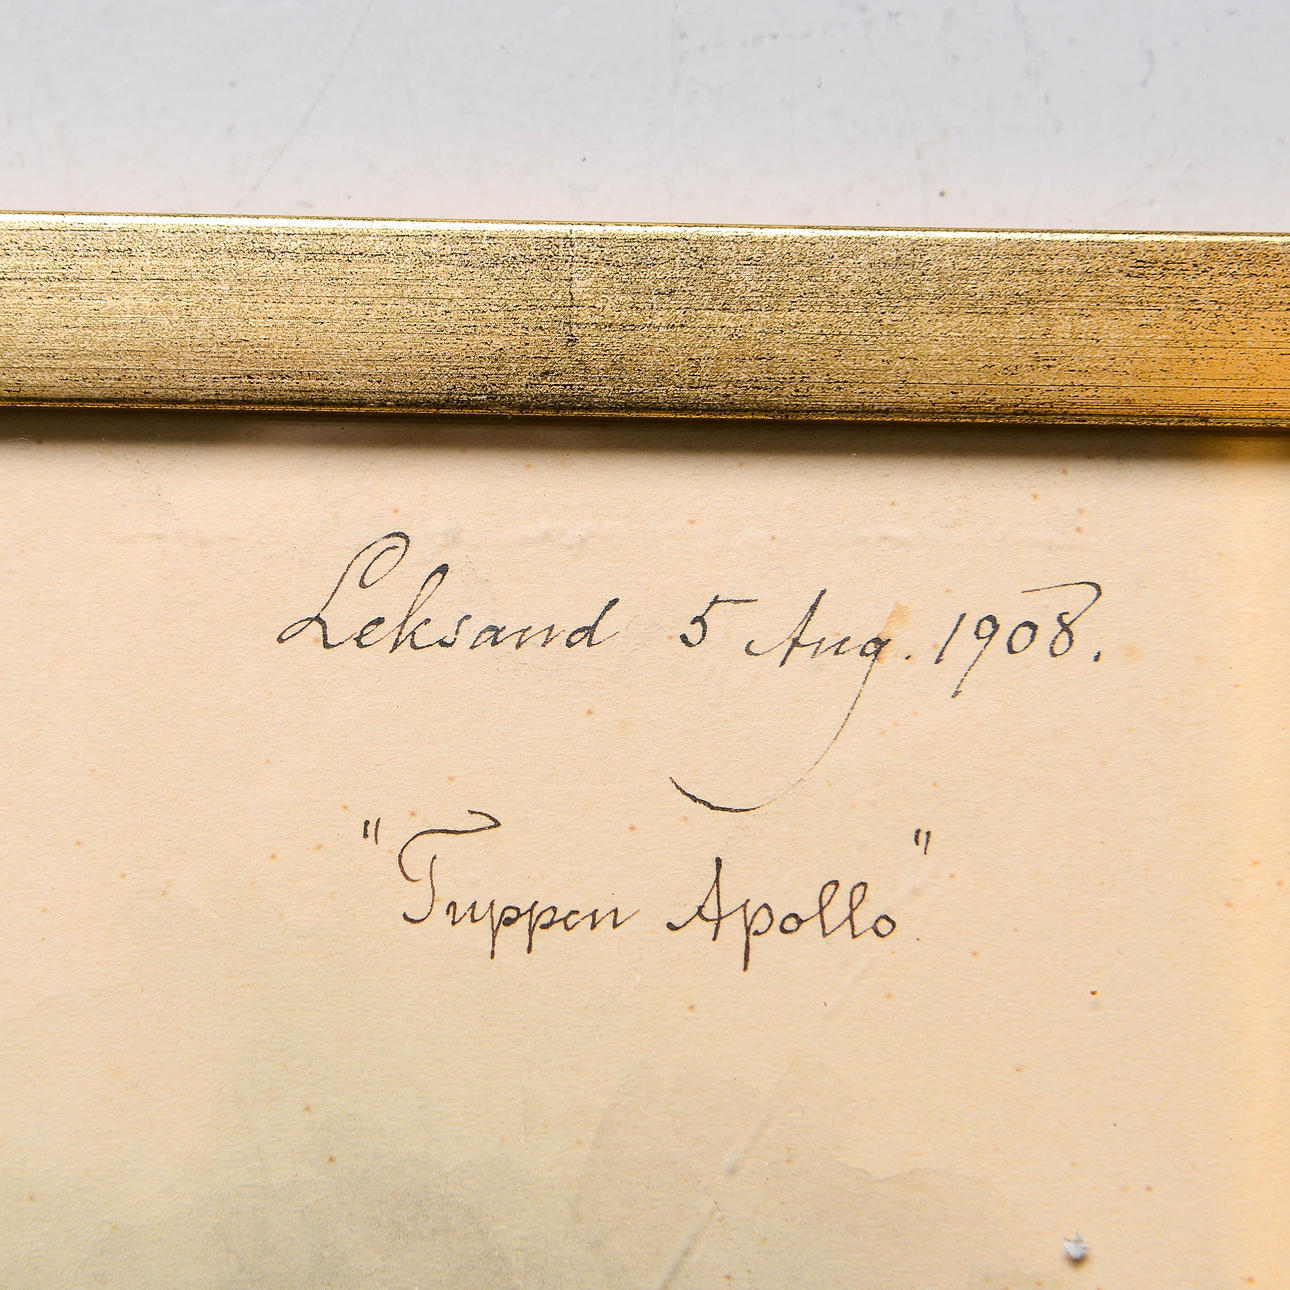 Leksand 5 Aug. 1908.
"Tuppen Apollo"